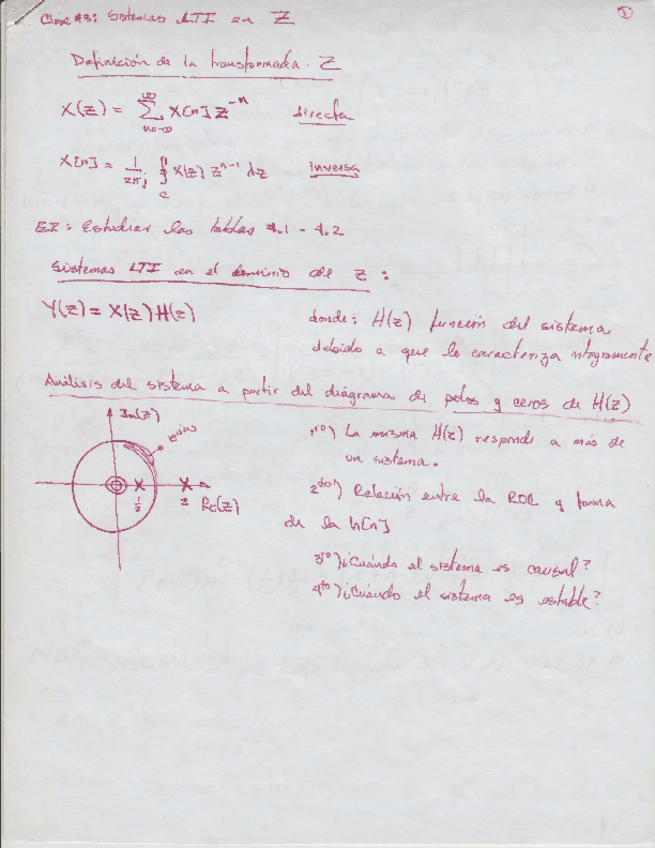 Clase #3: Sistemas LTI en Z
1
Definición de la transformada Z
X(z) = ∑ x[n] z^-n directa
∞
n=-∞
X[n] = 1/2πj ∮ X(z) z^n-1 dz inversa
c
EI: Estudiar las tablas 4.1 - 4.2
Sistemas LTI en el dominio de z:
Y(z) = X(z) H(z) donde: H(z) función del sistema
debido a que lo caracteriza integramente
Análisis del sistema a partir del diagrama de polos y ceros de H(z)
Im(z)
e^jω
1/2
2
Re(z)
1ro) La misma H(z) responde a más de
un sistema.
2do) Relación entre la ROC y forma
de la h[n]
3ro) ¿Cuándo el sistema es causal?
4to) ¿Cuándo el sistema es estable?